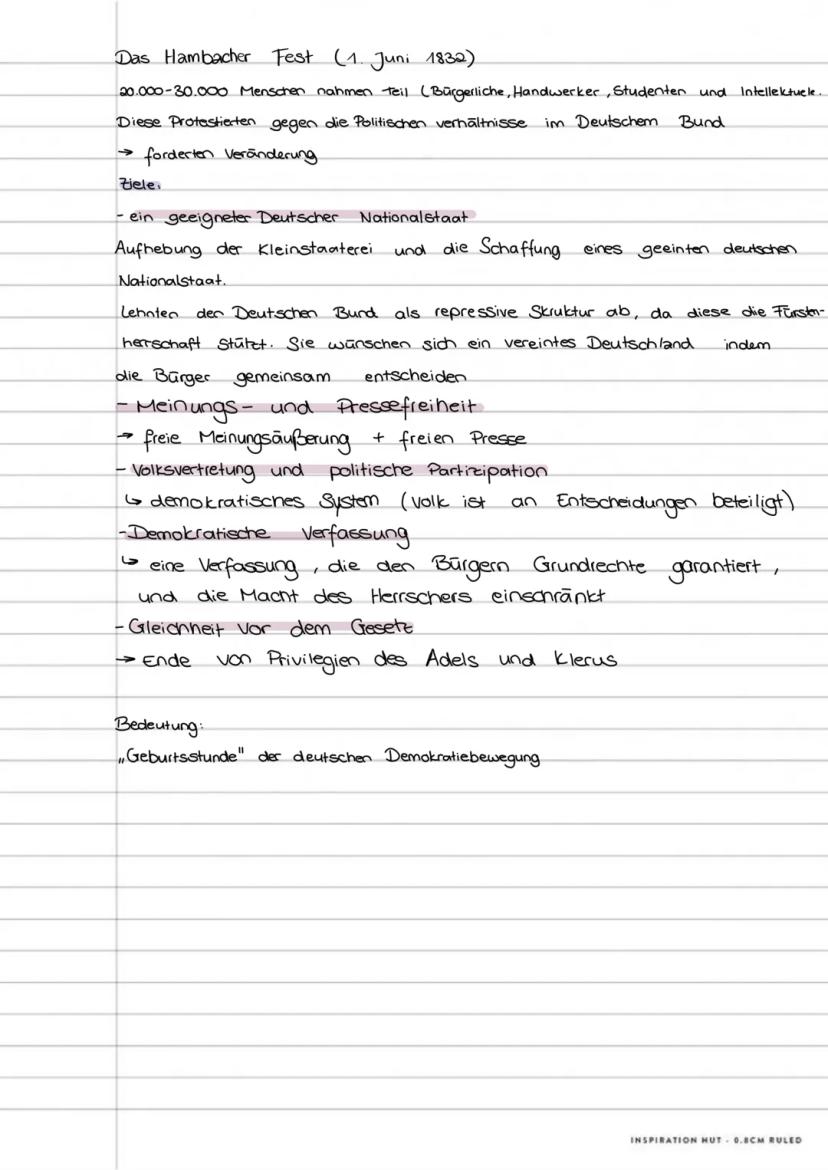 Das Hambacher Fest (1. Juni 1832)
20.000-30.000 Menschen nahmen teil (Bürgerliche, Handwerker, Studenten und Intellektuele.
Diese Protestierten gegen die Politischen verhältnisse im Deutschem Bund
→ forderten Veränderung
Ziele:
- ein geeigneter Deutscher Nationalstaat
Aufhebung der Kleinstaaterei und die Schaffung eines geeinten deutschen
Nationalstaat.
Lehnten den Deutschen Bund als repressive Skruktur ab, da diese die Fürsten-
herrschaft Stützt. Sie wünschen sich ein vereintes Deutschland indem
die Bürger gemeinsam entscheiden
- Meinungs- und Pressefreiheit
→ freie Meinungsäußerung + freien Presse
- Volksvertretung und politische Partizipation
↳ demokratisches System (Volk ist an Entscheidungen beteiligt)
- Demokratische Verfassung
↳ eine Verfassung, die den Bürgern Grundrechte garantiert,
und die Macht des Herrschers einschränkt
- Gleichheit vor dem Gesetz
→ Ende von Privilegien des Adels und Klerus
Bedeutung:
„Geburtsstunde" der deutschen Demokratiebewegung
INSPIRATION HUT - 0.8CM RULED